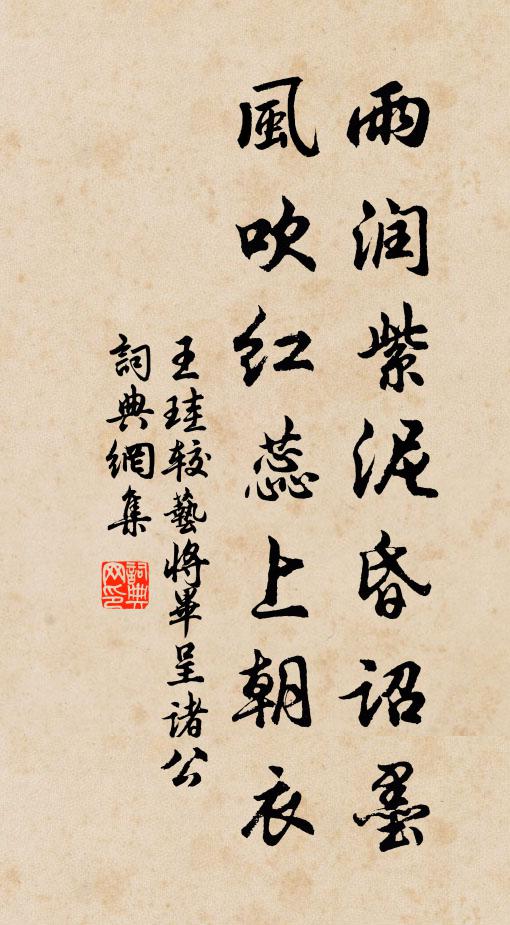 雨润紫泥昏詔墨
風吹红蕊上朝衣
王珪較藝將畢呈諸公
詞典網集
詞典网印